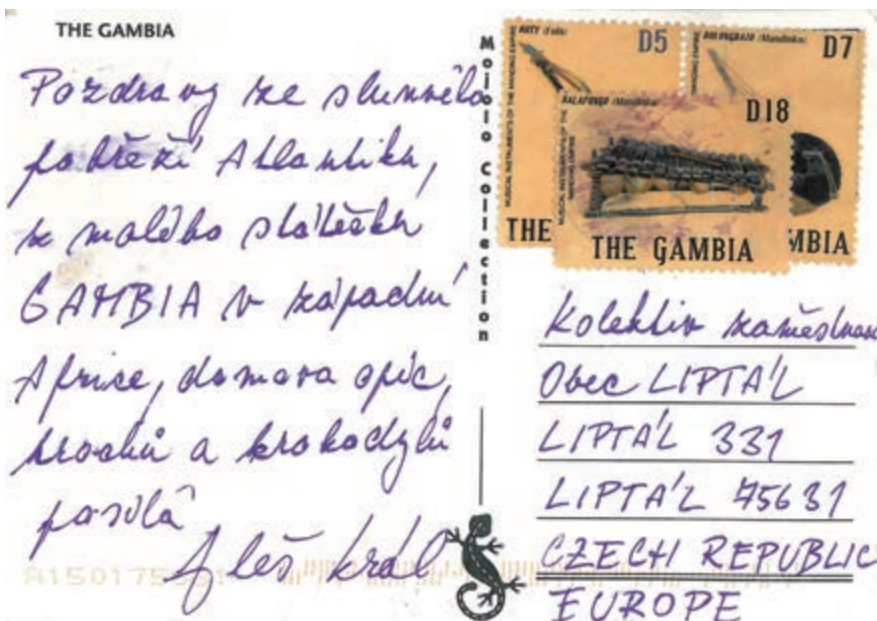 THE GAMBIA
Pozdravy ze slunného
pobřeží Atlantiku,
z malého státečku
GAMBIA v západní
Africe, domova opic,
hrochů a krokodýlů
posílá
Aleš Král
A150175
Mojolo Collection
MUSICAL INSTRUMENTS OF THE MANDING EMPIRE
(Fula)
D5
(Mandinka)
D7
THE
MBIA
MUSICAL INSTRUMENTS OF THE MANDING EMPIRE
BALAFONGO (Mandinka)
D18
THE GAMBIA
Kolektiv zaměstnanc
Obec LIPTÁL
LIPTÁL 331
LIPTÁL 75631
CZECH REPUBLIC
EUROPE